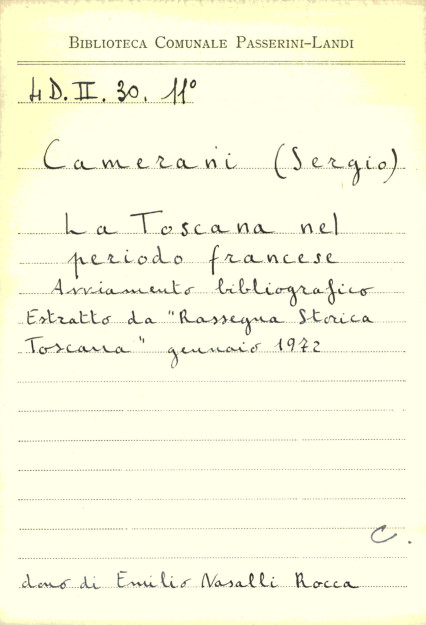 BIBLIOTECA COMUNALE PASSERINI-LANDI
4 D. II. 30. 11°
Camerani (Sergio)
La Toscana nel
periodo francese
Avviamento bibliografico
Estratto da "Rassegna Storica
Toscana" gennaio 1972
C.
dono di Emilio Nasalli Rocca